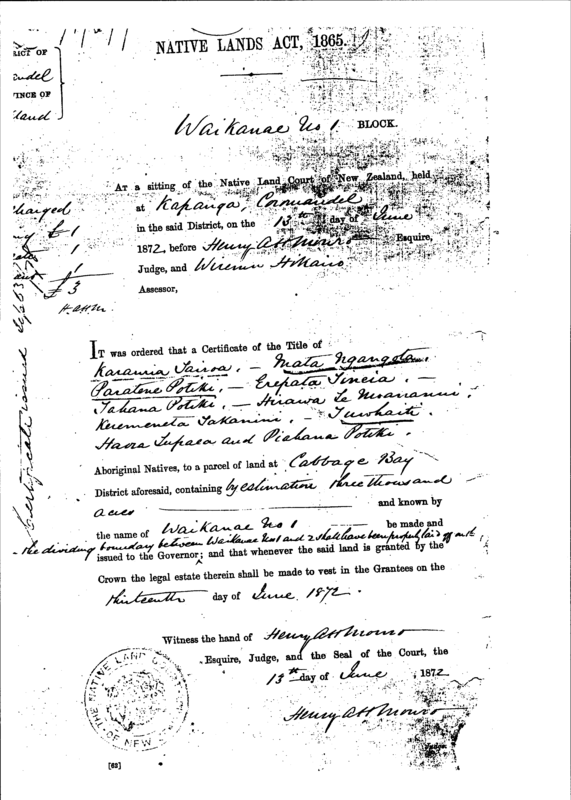 RICT OF
VINCE OF
NATIVE LANDS ACT, 1865.
Waikanae No 1 BLOCK.
AT a sitting of the Native Land Court of New Zealand, held
at Kapanga, Coromandel
in the said District, on the 13th day of June
1872, before Henry A H Monro Esquire,
Judge, and
Assessor,
harged
£ 1
1
1
£ 3
H.A.H.M.
IT was ordered that a Certificate of the Title of
Karauria — Mata
Paratene Potiki, — Erepata —
Tahana Potiki. — Hirawa Te
Keremeneta Takanini, —
Haora Tupaea and Pichana Potiki.
Aboriginal Natives, to a parcel of land at Cabbage Bay
District aforesaid, containing by estimation three thousand
acres and known by
the name of Waikanae No 1 be made and
- the dividing boundary between Waikanae No 1 and 2 shall have been properly laid off
issued to the Governor; and that whenever the said land is granted by the
Crown the legal estate therein shall be made to vest in the Grantees on the
thirteenth day of June 1872.
Witness the hand of Henry A H Monro
Esquire, Judge, and the Seal of the Court, the
13th day of June 1872
Henry A H Monro
Judge.
THE NATIVE LAND
OF NEW
[62]
Certificate issued